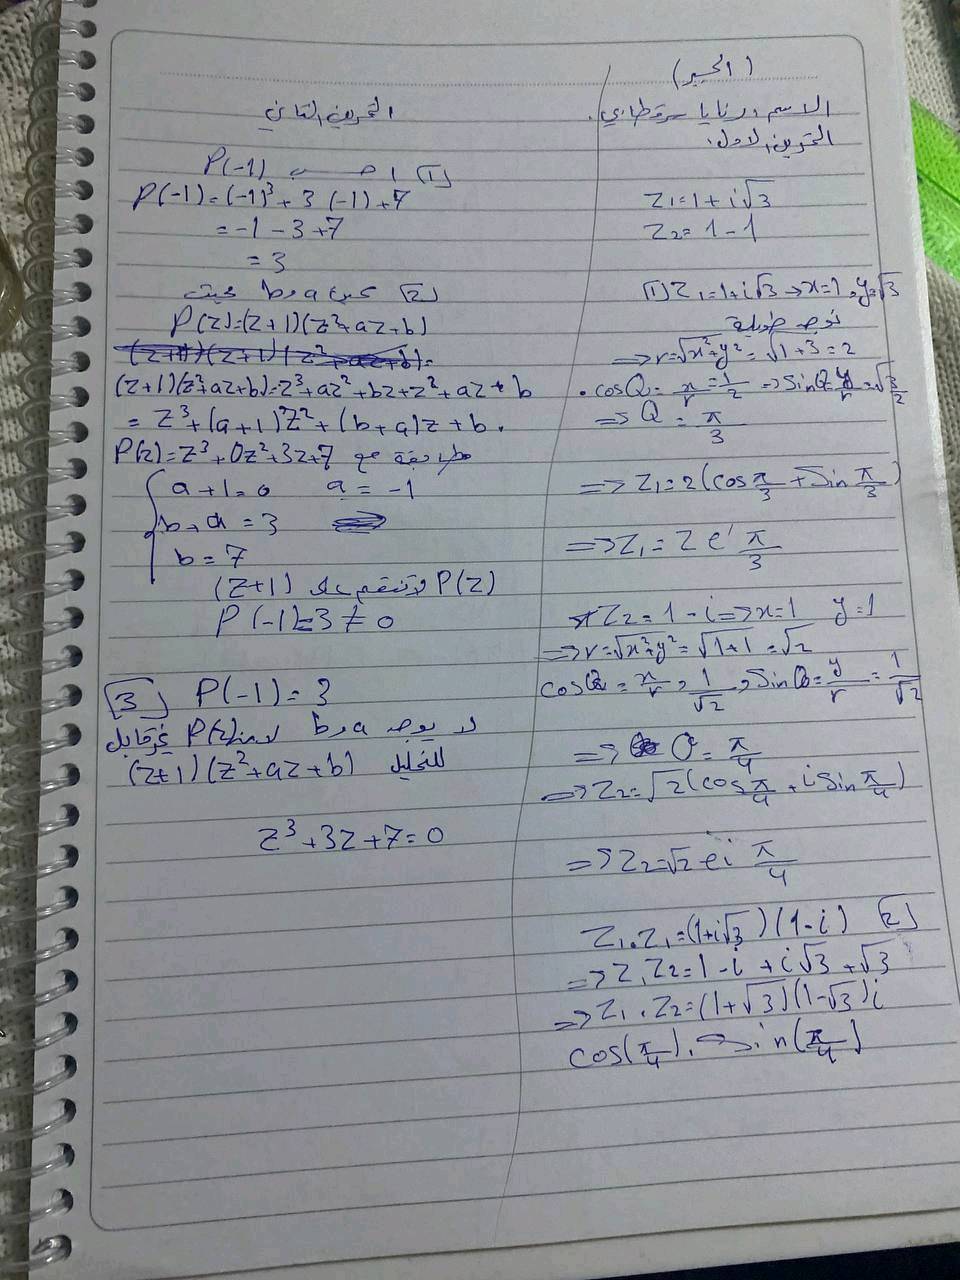 (الجبر)
الاسم: رنايا سرقطاني.
التمرين الاول:
Z₁=1+i√3
Z₂=1-1
[1] Z₁=1+i√3 → x=1, y=√3
=> r=√x²+y² = √1+3=2
• cosQ = x/r = 1/2 => sinQ = y/r = √3/2
=> Q = π/3
=> Z₁=2(cos π/3 + sin π/3)
=> Z₁ = 2 e^i π/3
Z₂=1-i => x=1 y=1
=> r=√x²+y² = √1+1 = √2
cosQ = x/r, 1/√2, sinQ = y/r = 1/√2
=> Q = π/4
=> Z₂=√2(cos π/4 + i sin π/4)
=> Z₂=√2 e i π/4
Z₁.Z₁=(1+i√3)(1-i) [2]
=> Z₁Z₂=1-i+i√3+√3
=> Z₁.Z₂=(1+√3)(1-√3)i
cos(π/4), sin(π/4)
التمرين الثاني
[1] احسب P(-1)
P(-1)=(-1)³+3(-1)+7
=-1-3+7
=3
[2] عين a و b حيث
P(z)=(z+1)(z²+az+b)
(z+1)(z²+az+b)=z³+az²+bz+z²+az+b
= z³+(a+1)z²+(b+a)z+b.
P(z)=z³+0z²+3z+7 مطابقة مع
a+1=0 a=-1
b+a=3
b=7
P(z) لاتنقسم على (z+1)
P(-1)=3≠0
[3] P(-1)=3
لا يوجد a و b لان P(z) غير قابل
للتحليل (z+1)(z²+az+b)
z³+3z+7=0